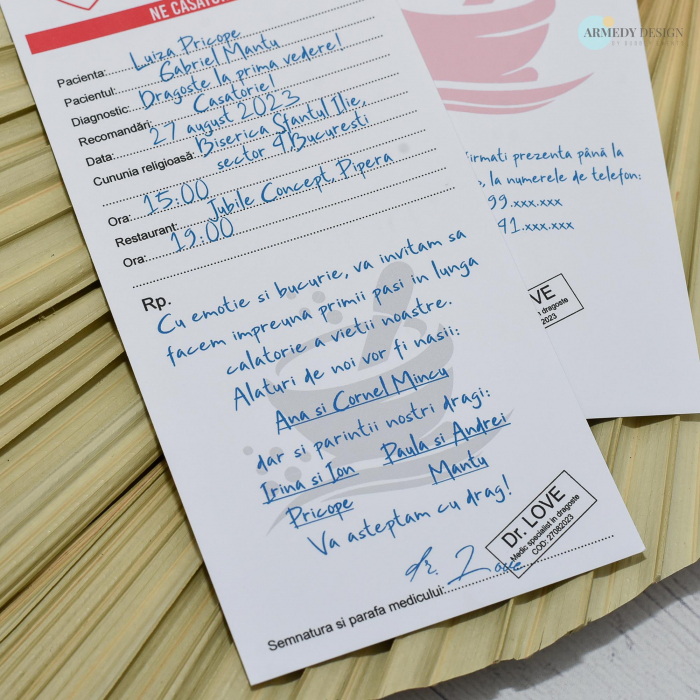 NE CASATO
Pacienta: Luiza Pricope
Pacientul: Gabriel Mantu
Diagnostic: Dragoste la prima vedere!
Recomandări: Casatorie!
Data: 27 august 2023
Cununia religioasă: Biserica Sfantul Ilie,
sector 4 Bucuresti
Ora: 15:00
Restaurant: Jubile Concept, Pipera
Ora: 19:00
Rp.
Cu emotie si bucurie, va invitam sa
facem impreuna primii pasi in lunga
calatorie a vietii noastre.
Alaturi de noi vor fi nasii:
Ana si Cornel Mincu
dar si parintii nostri dragi:
Irina si Ion Paula si Andrei
Pricope Mantu
Va asteptam cu drag!
Dr. LOVE
Medic specialist in dragoste
COD: 27082023
Dr. Love
Semnatura si parafa medicului:
ARMEDY DESIGN
firmati prezenta până la
, la numerele de telefon:
99.xxx.xxx
91.xxx.xxx
VE
n dragoste
2023